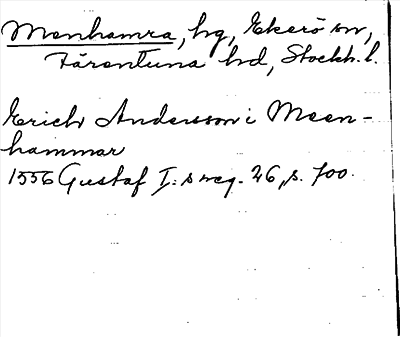 Menhamra, hg, Ekerö sn,
Färentuna hd, Stockh. l.
Erich Andersson i Meen-
hammar
1556 Gustaf I:s reg. 26, s. 700.